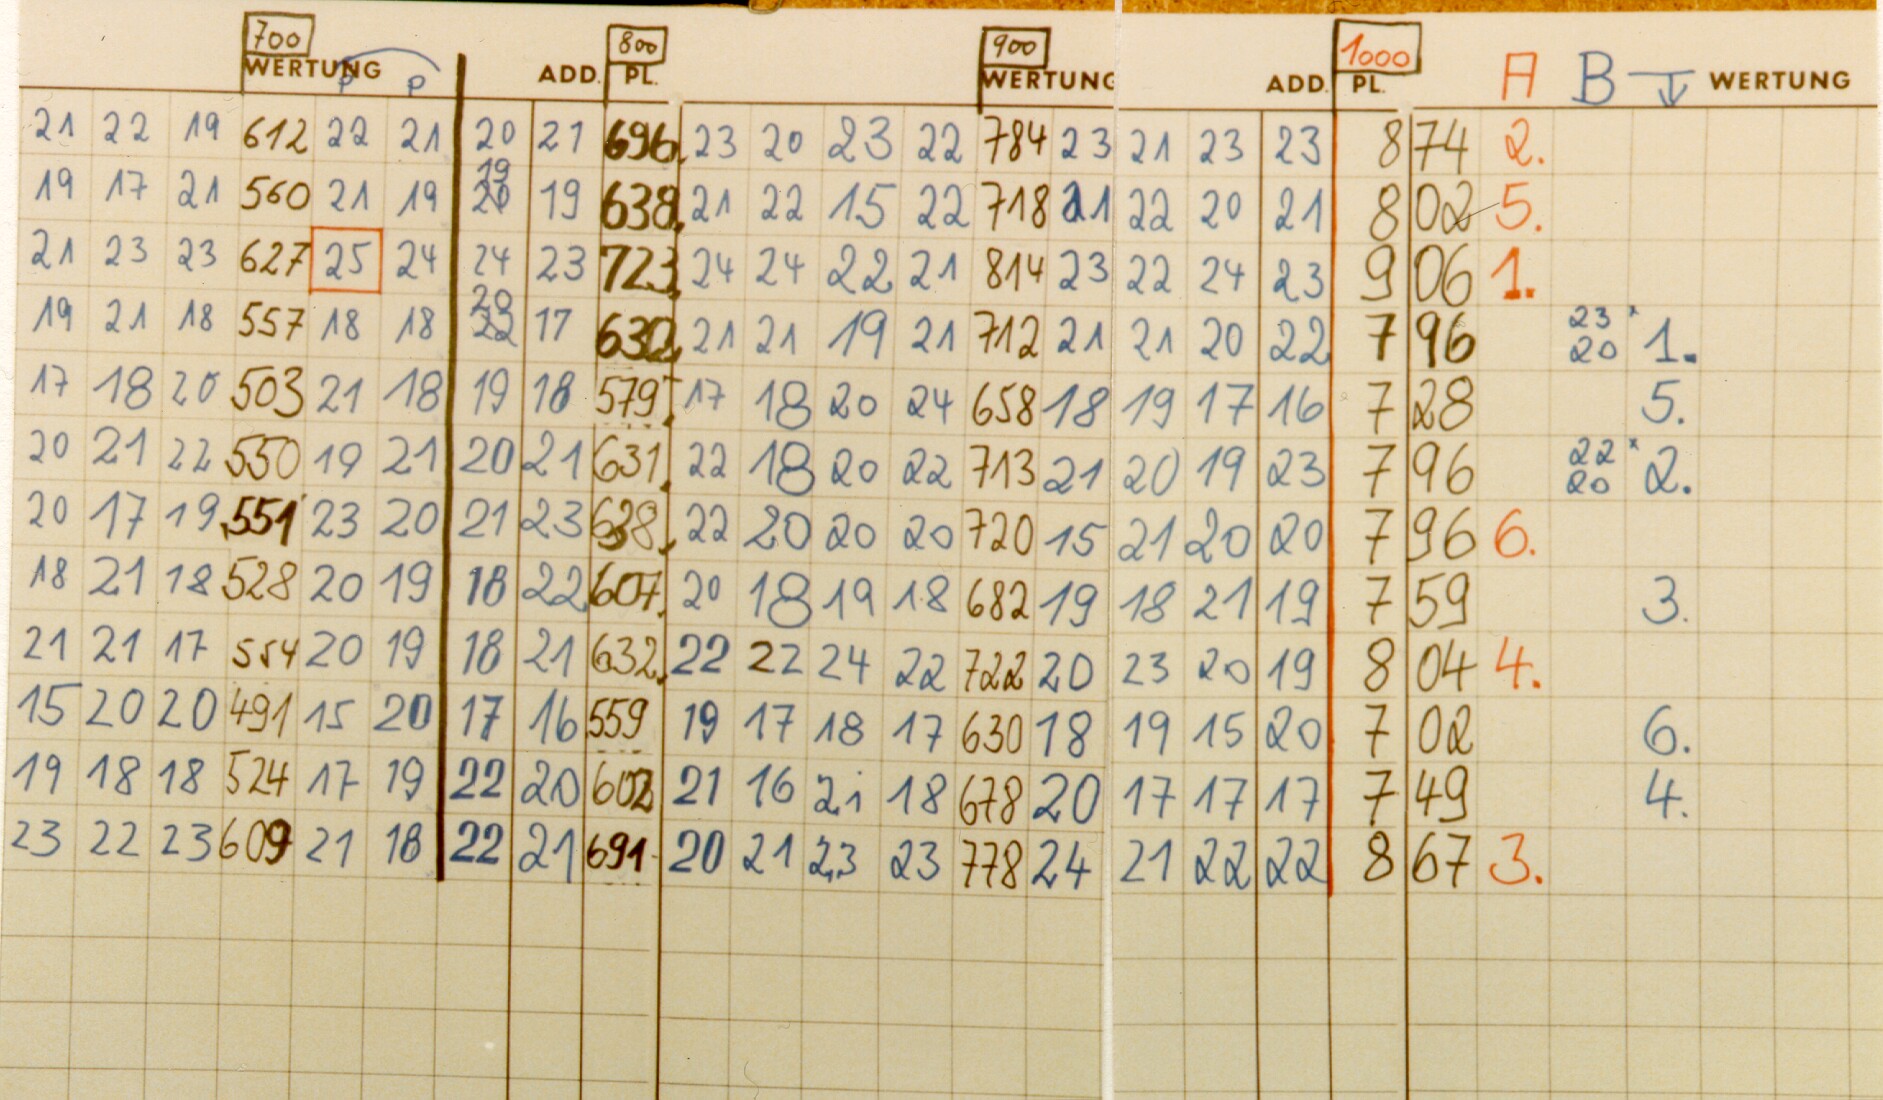 700 800 900 1000
WERTUNG ADD. PL. WERTUNG ADD. PL. A B WERTUNG
p p
21 22 19 612 22 21 20 21 696. 23 20 23 22 784 23 21 23 23 874 2.
19
19 17 21 560 21 19 20 19 638. 21 22 15 22 718 21 22 20 21 802 5.
21 23 23 627 25 24 24 23 723. 24 24 22 21 814 23 22 24 23 906 1.
20 23 x
19 21 18 557 18 18 22 17 630. 21 21 19 21 712 21 21 20 22 796 20 1.
17 18 20 503 21 18 19 18 579. 17 18 20 24 658 18 19 17 16 728 5.
22 x
20 21 22 550 19 21 20 21 631. 22 18 20 22 713 21 20 19 23 796 20 2.
20 17 19 551 23 20 21 23 638. 22 20 20 20 720 15 21 20 20 796 6.
18 21 18 528 20 19 18 22 607. 20 18 19 18 682 19 18 21 19 759 3.
21 21 17 554 20 19 18 21 632. 22 22 24 22 722 20 23 20 19 804 4.
15 20 20 491 15 20 17 16 559 19 17 18 17 630 18 19 15 20 702 6.
19 18 18 524 17 19 22 20 602 21 16 21 18 678 20 17 17 17 749 4.
23 22 23 609 21 18 22 21 691 20 21 23 23 778 24 21 22 22 867 3.